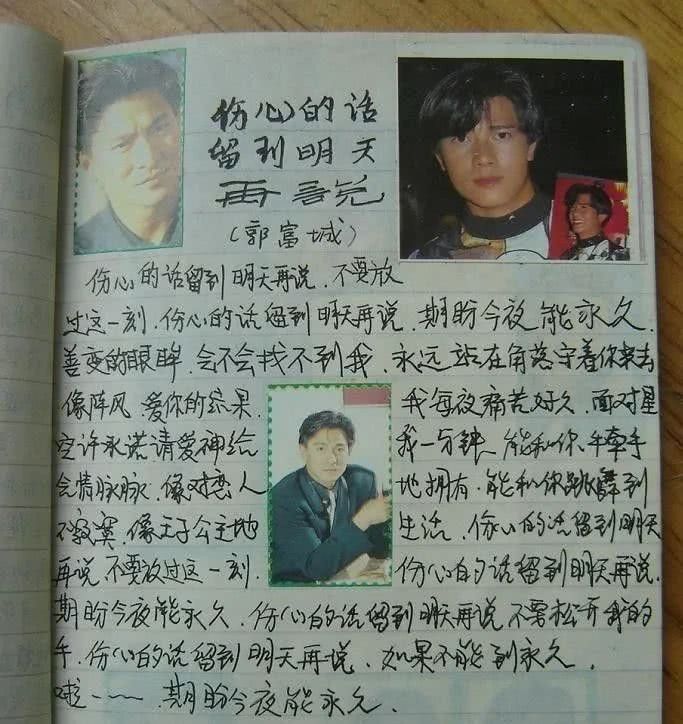 伤心的话
留到明天
再说
(郭富城)
伤心的话留到明天再说．不要放
过这一刻．伤心的话留到明天再说．期盼今夜能永久．
善变的眼眸．会不会找不到我．永远站在角落守着你来去
像阵风．爱你的结果．我每夜痛苦好久．面对星
空许永诺请爱神给我一分钟．能和你手牵手
含情脉脉．像对恋人地拥有．能和你跳舞到
不寂寞．像王子公主地生活．伤心的话留到明天
再说．不要放过这一刻．伤心的话留到明天再说．
期盼今夜能永久．伤心的话留到明天再说不要松开我的
手．伤心的话留到明天再说．如果不能到永久．
啦……期盼今夜能永久．